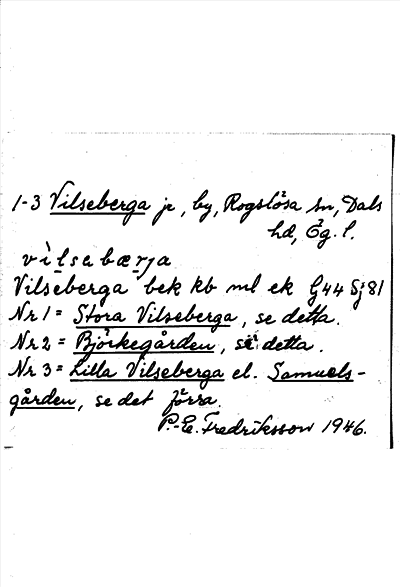 1-3 Vilseberga jr, by, Rogslösa sn, Dals
hd, Ög. l.
vìlsabærja
Vilseberga bek kb ml ek G44 Sj81
Nr 1 = Stora Vilseberga, se detta.
Nr 2 = Björkegården, se detta.
Nr 3 = Lilla Vilseberga el. Samuels-
gården, se det förra.
P.-E. Fredriksson 1946.